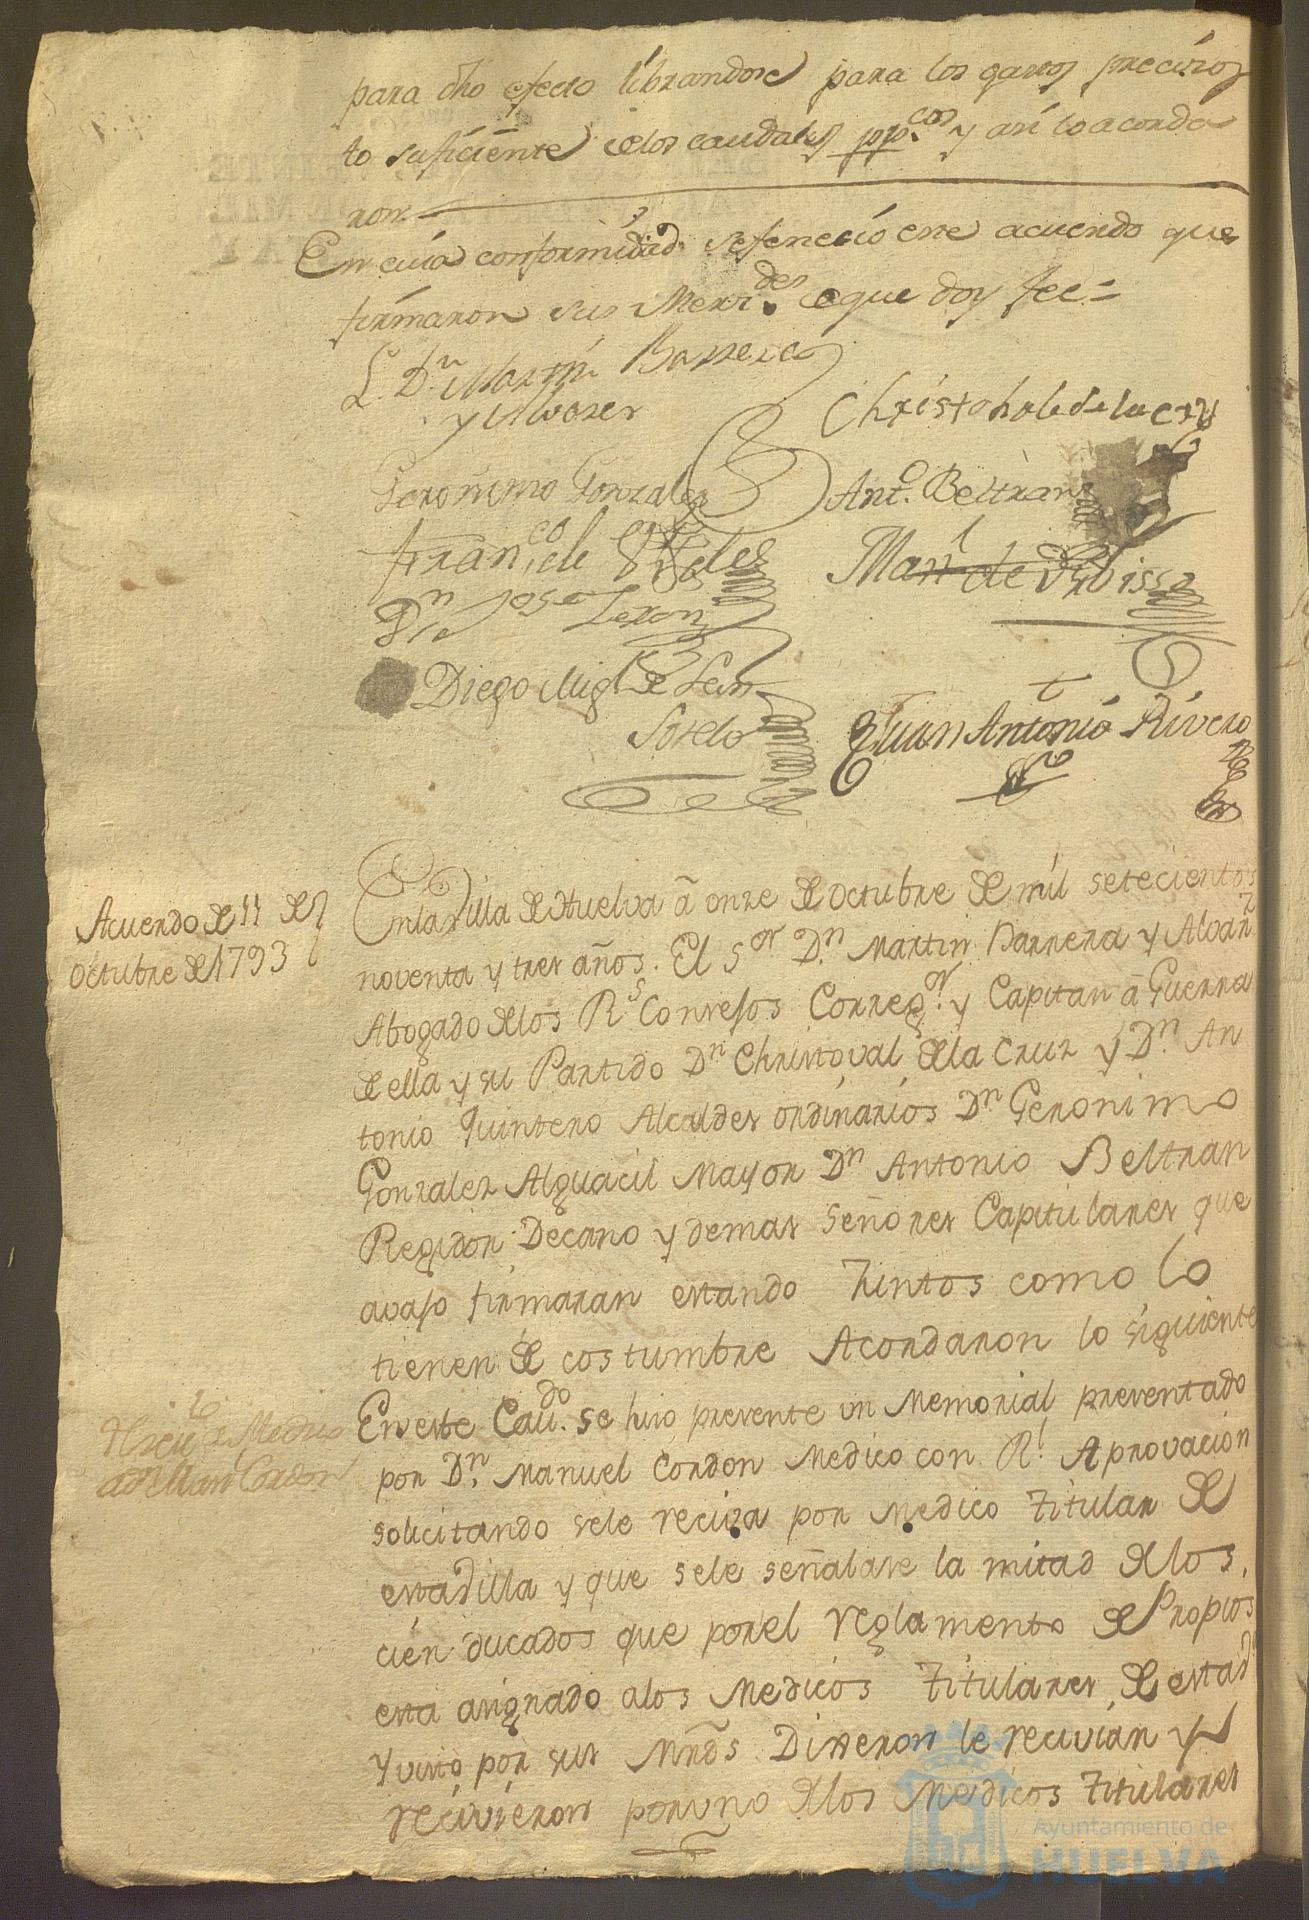 para dho efecto librandose para los gastos precisos
lo suficiente de los caudales pp.cos y asi lo acorda
ron
En cuia conformidad se fenecio este acuerdo que
firmaron sus Merz.des de que doy fee =
L. Dn Martin Barrera
y Alvarez
Christobal de la Cruz
Geronimo Gonzalez
Ant.o Beltran
Fran.co de
Man.l de
Dn Jose Lexon
Diego Migl de Leon
Sotelo
Juan Antonio Rivero
Acuerdo de 11 de
Octubre de 1793
En la Villa de Huelva â onze de Octubre de mil setecientos
noventa y tres años. El S.or D.n Martin Barrera y Alvarz
Abogado de los R.s Consejos Correg.or y Capitan â Guerra
de ella y su Partido D.n Christoval de la Cruz y D.n An
tonio Quintero Alcaldes ordinarios D.n Geronimo
Gonzalez Alguacil Mayor D.n Antonio Beltran
Regidor Decano y demas señores Capitulares que
avajo firmaran estando Juntos como lo
tienen de costumbre Acordaron lo siguiente
En este Cav.do se hizo presente un Memorial presentado
por D.n Manuel Cordon Medico con R.l Aprovacion
solicitando sele reciva por Medico Titular de
esta Villa y que sele señalase la mitad de los
cien ducados que por el reglamento de Propios
esta asignado a los Medicos Titulares de esta d
Y visto por sus Mrds Dixeron le recivian y
recivieron por uno de los Medicos Titulares
de Medico
a Dn Man.l Cordon
Ayuntamiento de
HUELVA